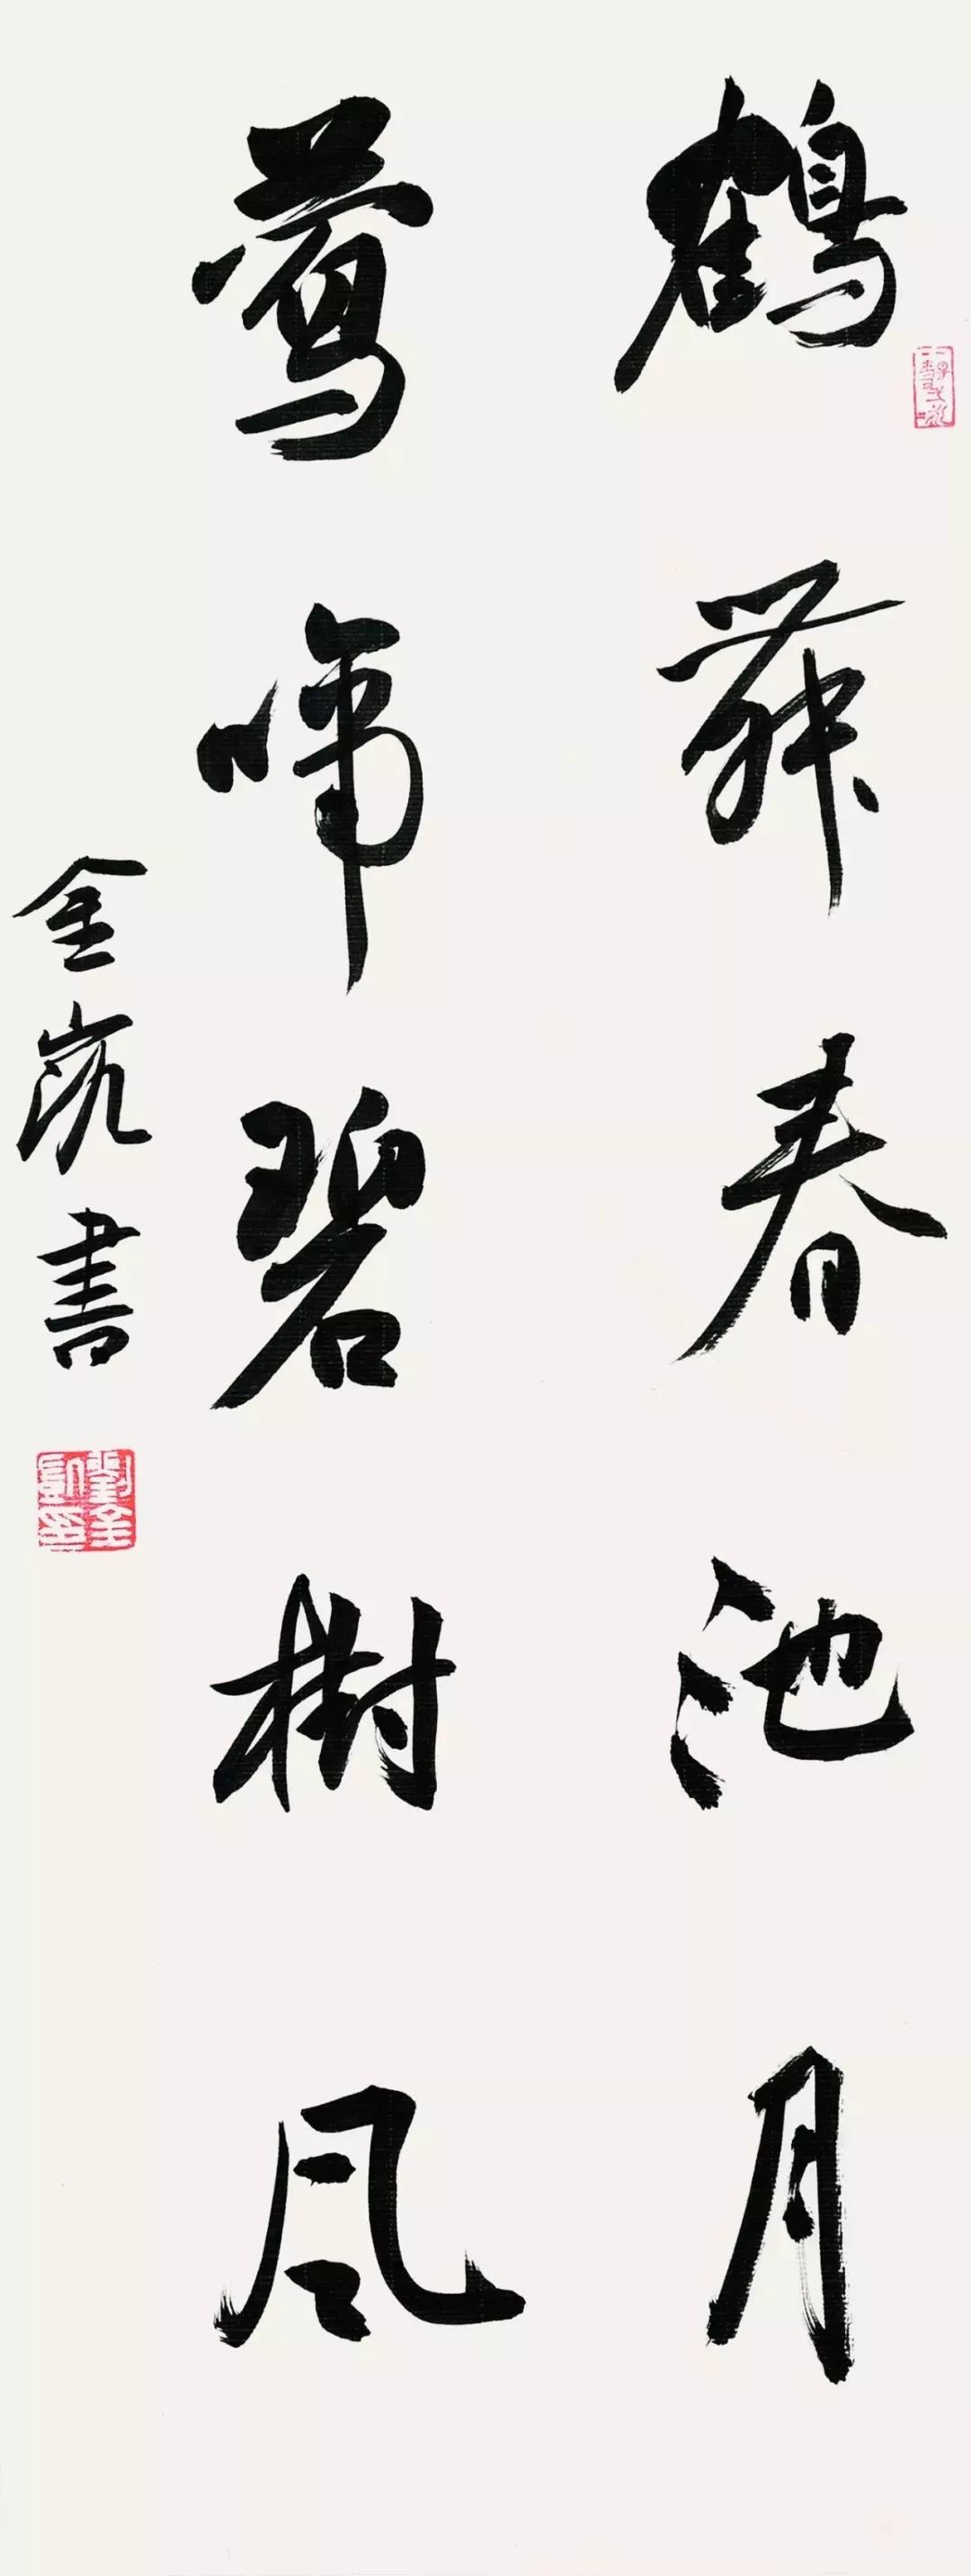 鶴舞春池月
鶯啼碧樹風
金凱書
劉金凱印